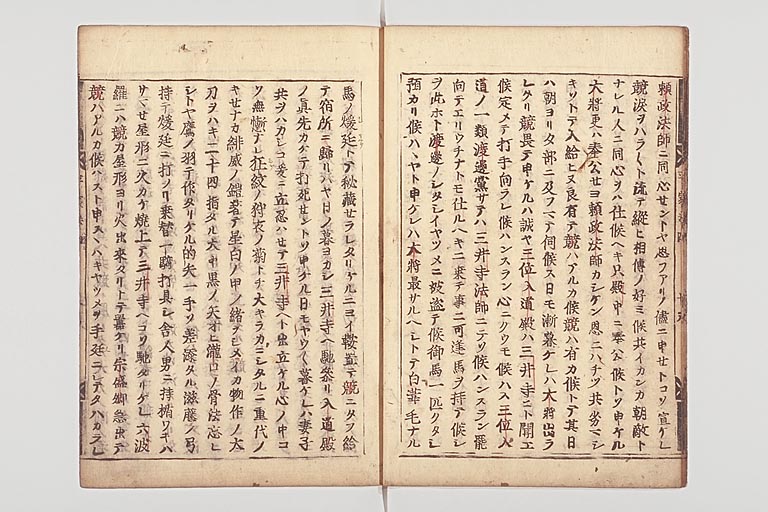 頼政法師ニ同心セントヤ思フアリノ儘ニ申セトコソ宣ケレ
競涙ヲハラ〱ト流テ縦ヒ相傳ノ好ミ候共イカンカ朝敵ト
ナレル人ニ同心ヲハ仕候ヘキ只殿中ニ奉公候トソ申ケル
大将更ハ奉公セヨ頼政法師カシケン恩ニハチツ共劣マシ
キソトテ入給ヒヌ良有テ競ハアルカ候競ハ有カ候トテ其日
ハ朝ヨリタ部ニ及フマテ伺候ス日モ漸暮ケレハ大将出ラ
レタリ競畏テ申ケルハ誠ヤ三位入道殿ハ三井寺ニト聞エ
候定メテ打手向ラレ候ハンスラン心ニクウモ候ハス三位入
道ノ一類渡邊黨サテハ三井寺法師ニテソ候ハンスラン罷
向テエリウチナトモ仕ルヘキニ乗テ事ニ可逢馬ヲ持テ候シ
ヲ此ホト渡邊ノシタシイヤツメニ被盗テ候御馬一匹クタシ
預カリ候ハヽヤト申ケレハ大将最サルヘシトテ白葦毛ナル
馬ノ煖廷トテ秘蔵セラレタリケルニヨイ鞍置テ競ニタフ給
テ宿所ニ歸リハヤ日ノ暮ヨカシ三井寺ヘ馳参リ入道殿
ノ真先カケテ打死セントソ申ケル日モヤウ〱暮ケレハ妻子
共ヲハカシコ爰ニ立忍ハセテ三井寺ヘト出立ケル心ノ中コ
ソ無慚ナレ狂紋ノ狩衣ノ菊トチ大キラカニシタルニ重代ノ
キセナカ緋威ノ鎧着テ星白ノ甲ノ緒ヲシメイカ物作ノ大
刀ヲハキ二十四指タル大中黒ノ矢オヒ瀧口ノ骨法忘レ
シトヤ鷹ノ羽テ作タリケル的矢一手ソ差添タル滋藤ノ弓
持テ煖廷ニ打ノリ乗替一騎打具シ舎人男ニ持楯ワキハ
サマセ屋形ニ火カケ焼上テ三井寺ヘコソ馳タリケレ六波
羅ニハ競カ屋形ヨリ火出来タリトテ罵ケリ宗盛卿急出テ
競ハアルカ候ハスト申スヽハキヤツメヲ手延ニシテタハカラレ